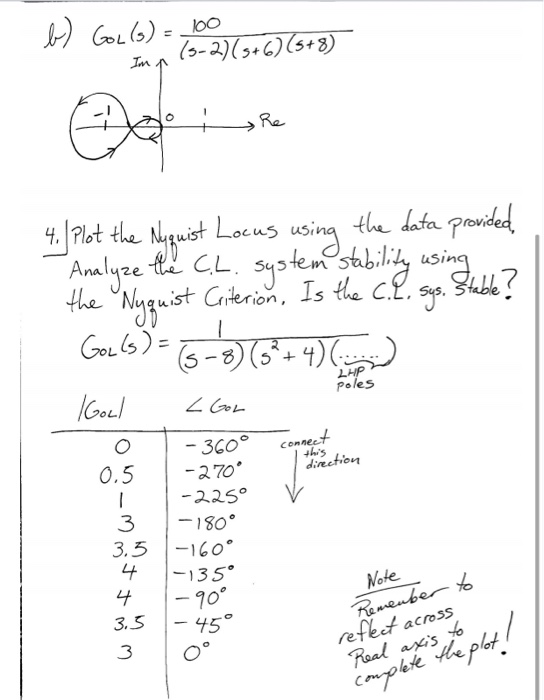 b) GOL(s) = 100 / (s-2)(s+6)(s+8)
Im
-1 0 1 Re
4. Plot the Nyquist Locus using the data provided.
Analyze the C.L. system stability using
the Nyquist Criterion. Is the C.L. sys. stable?
GOL(s) = 1 / (s-8)(s²+4)(......)
LHP
poles
|GOL| ∠GOL
0 -360°
0.5 -270°
1 -225°
3 -180°
3.5 -160°
4 -135°
4 -90°
3.5 -45°
3 0°
connect
this
direction
Note
Remember to
reflect across
Real axis to
complete the plot!